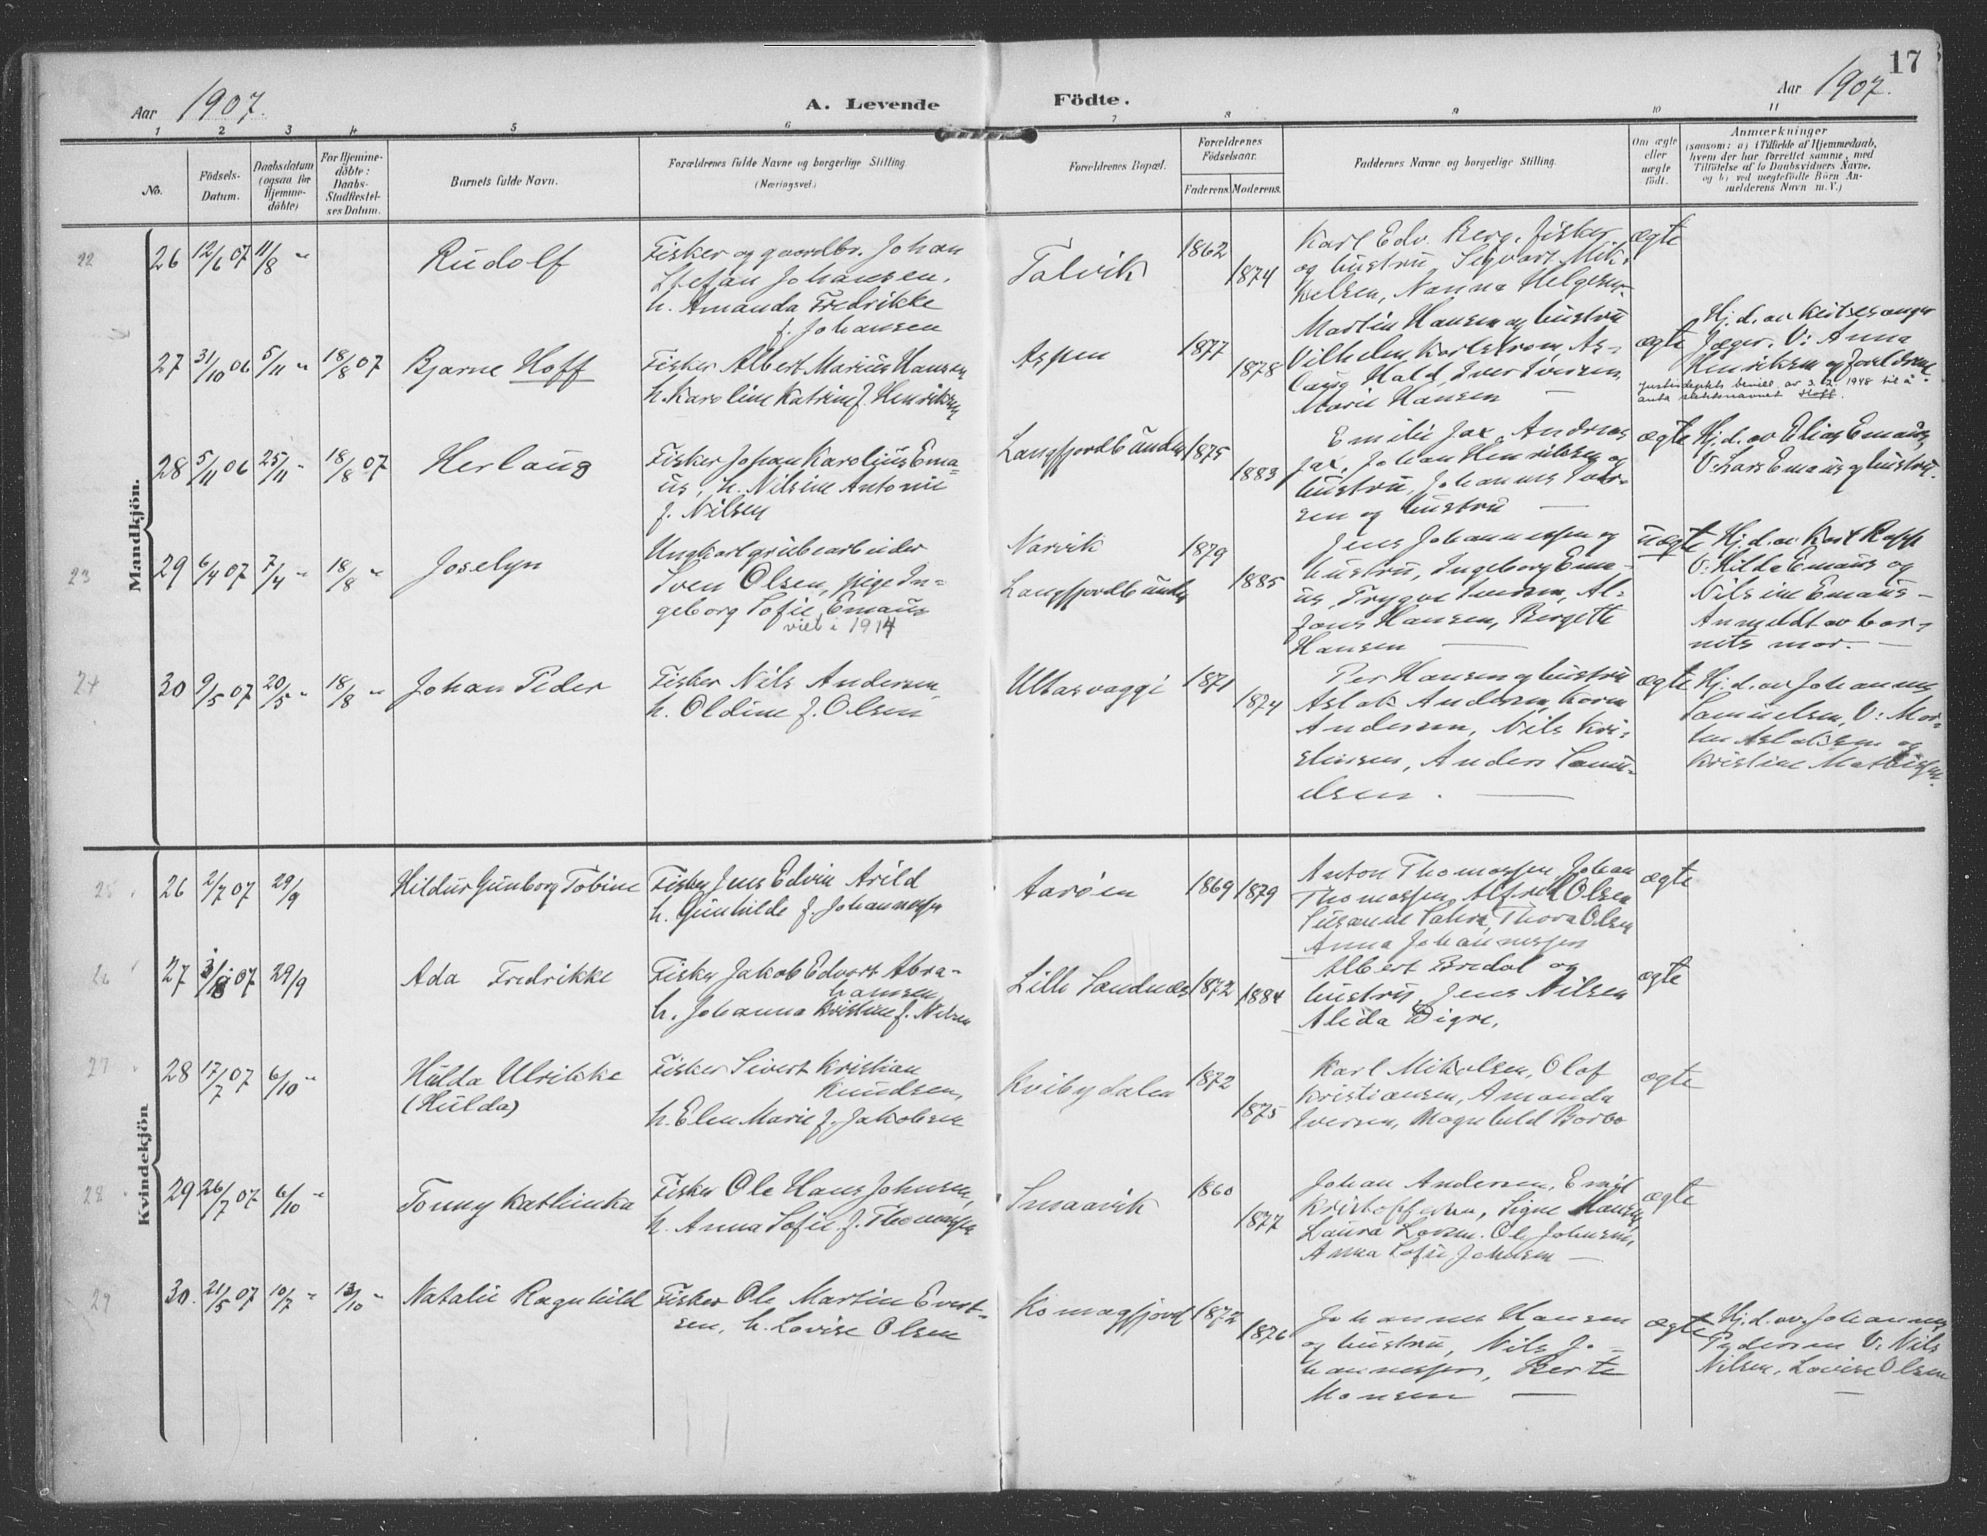 17
Aar 1907.
A. Levende Födte.
Aar 1907.
1 2 3 4 5 6 7 8 9 10 11
No.
Födsels-
Datum.
Daabsdatum
(ogsaa for
Hjemme-
döbte)
For Hjemme-
döbte:
Daabs-
Stadfæstel-
ses Datum.
Barnets fulde Navn.
Forældrenes fulde Navne og borgerlige Stilling
(Næringsvei.)
Forældrenes Bopæl.
Forældrenes
Födselsaar.
Faderens. Moderens.
Faddernes Navne og borgerlige Stilling.
Om ægte
eller
uægte
födt.
Anmærkninger
(saasom: a) i Tilfælde af Hjemmedaab,
hvem der har forrettet samme, med
Tilföielse af to Daabsvidners Navne.
og b) ved uægtefödte Börn An-
melderens Navn m. V.)
Mandkjön.
22
26 12/6 07 11/8 "
Rudolf
Fisker og gaardbr. Johan
Stefan Johansen.
h. Amanda Fredrikke
f. Johansen
Talvik
1862
1874
Karl Edv. Berg, fisker
og hustru, Sigvart Mik-
kelsen, Nanna Helgesen
ægte
27 31/10 06 5/11 " 18/8 07
Bjarne Hoff
Fisker Albert Marius Hansen
h. Karoline Katrine f. Henriksen
Aspen
1877
1878
Martin Hansen og hustru
Vilhelm Karlstrøm, As-
laug Hald, Iver Iversen,
Marie Hansen
ægte
Hj. d. av kirkesanger
Jæger. V: Anna
Henriksen og forældrene
Justisdepts bevill. av 3.2.1948 til å
anta slektsnavnet Hoff.
28 5/11 06 25/11 " 18/8 07
Herlaug
Fisker Johan Karolius Ema-
us, h. Nilsine Antonie
f. Nilsen
Langfjordbunden
1875
1883
Emilie Jax, Andreas
Jax, Johan Henriksen og
hustru, Johannes Iver-
sen og hustru
ægte
Hj. d. av Elias Emaus,
V: Lars Emaus og hustru.
23
29 6/4 07 7/4 " 18/8 "
Joselyn
Ungkarl grubearbeider
Sven Olsen, pige In-
geborg Sofie Emaus
viet i 1914
Narvik
Langfjordbunden
1879
1885
Jens Johannessen og
hustru, Ingeborg Ema-
us, Trygve Iversen, Al-
fons Hansen, Bergette
Hansen
uægte
Hj. d. av Karl Rapp
V: Hilda Emaus og
Nilsine Emaus -
Anmeldt av bar-
nets mor.
24
30 9/5 07 20/5 " 18/8 "
Johan Peder
Fisker Nils Andersen,
h. Oldine f. Olsen
Ulbasvaggi
1871
1874
Per Hansen og hustru
Aslak Andersen, Karen
Andersen, Nils Kri-
stensen, Anders Samu-
elsen.
ægte
Hj. d. av Johannes
Samuelsen, V: Mor-
ten Aslaksen og
Kristine Mathissen.
Kvindekjön
25
26 2/7 07 29/9
Hildur Gunborg Tobine
Fisker Jens Edvin Arild
h. Gunhilde f. Johannessen
Aarøen
1869 1879
Anton Thomassen, Johan
Thomassen, Alfred Olsen
Susanne Sahra, Thora Olsen
Anna Johannessen
ægte
26
27 3/8 07 29/9
Ada Fredrikke
Fisker Jakob Edvart Abra-
hamsen
h. Johanna Kristine f. Nilsen
Lille Sandnæs
1872
1884
Albert Bredal og
hustru, Jens Nilsen
Alida Digre.
ægte
27
28 17/7 07 6/10 "
Hilda Ulrikke
(Hulda)
Fisker Sivert Kristian
Knudsen,
h. Elen Marie f. Jakobsen
Kvibydalen
1872
1875
Karl Mikalsen, Olaf
Kristiansen, Amanda
Iversen, Magnhild Barbo
ægte
28
29 26/7 07 6/10 "
Tonny Kathinka
Fisker Ole Hans Johnsen,
h. Anna Sofie f. Thomassen
Smaavik
1860
1877
Johan Andersen, Emil
Kristoffersen, Signe Hansen,
Laura Larsen, Ole Johnsen,
Anna Sofie Johnsen
ægte
29
30. 21/5 07 10/7 " 13/10 "
Natalie Ragnhild
Fisker Ole Martin Evert-
sen, h. Lovise Olsen
Komagfjord
1872
1876
Johannes Hansen
og hustru, Nils Jo-
hannessen, Berte
Monsen
ægte
Hj. d. av Johannes
Pedersen V: Nils
Nilsen, Lovise Olsen